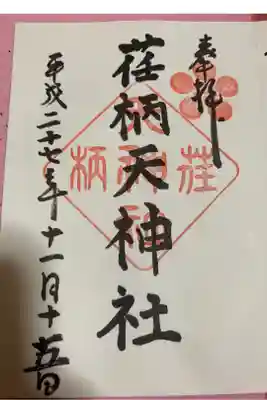 奉拝
荏柄天神社
平成二十七年十一月十五日